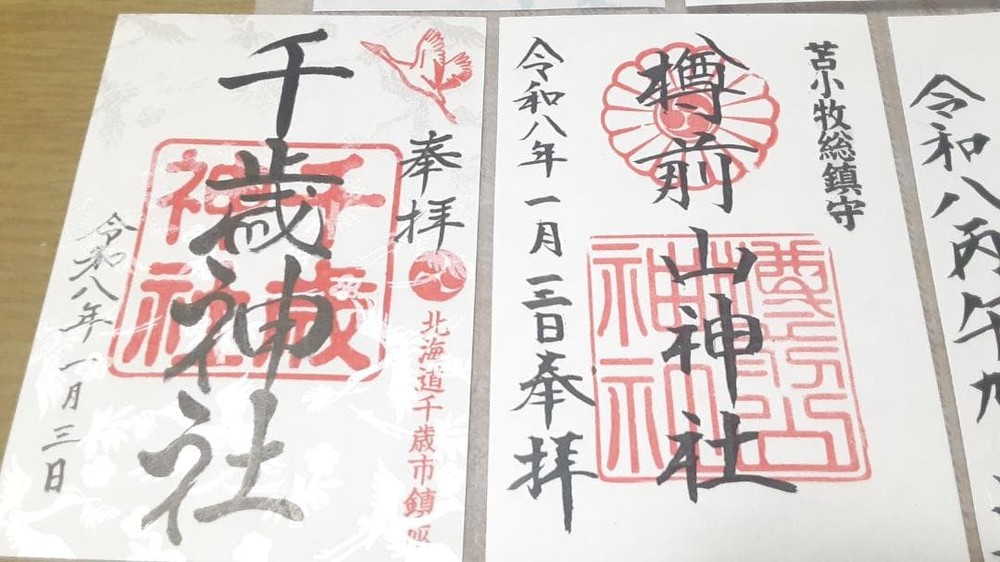 奉拝
千歳神社
千歳神社
北海道千歳市鎮座
令和八年一月三日
苫小牧総鎮守
樽前山神社
樽前山神社
令和八年一月三日奉拝
令和八丙午